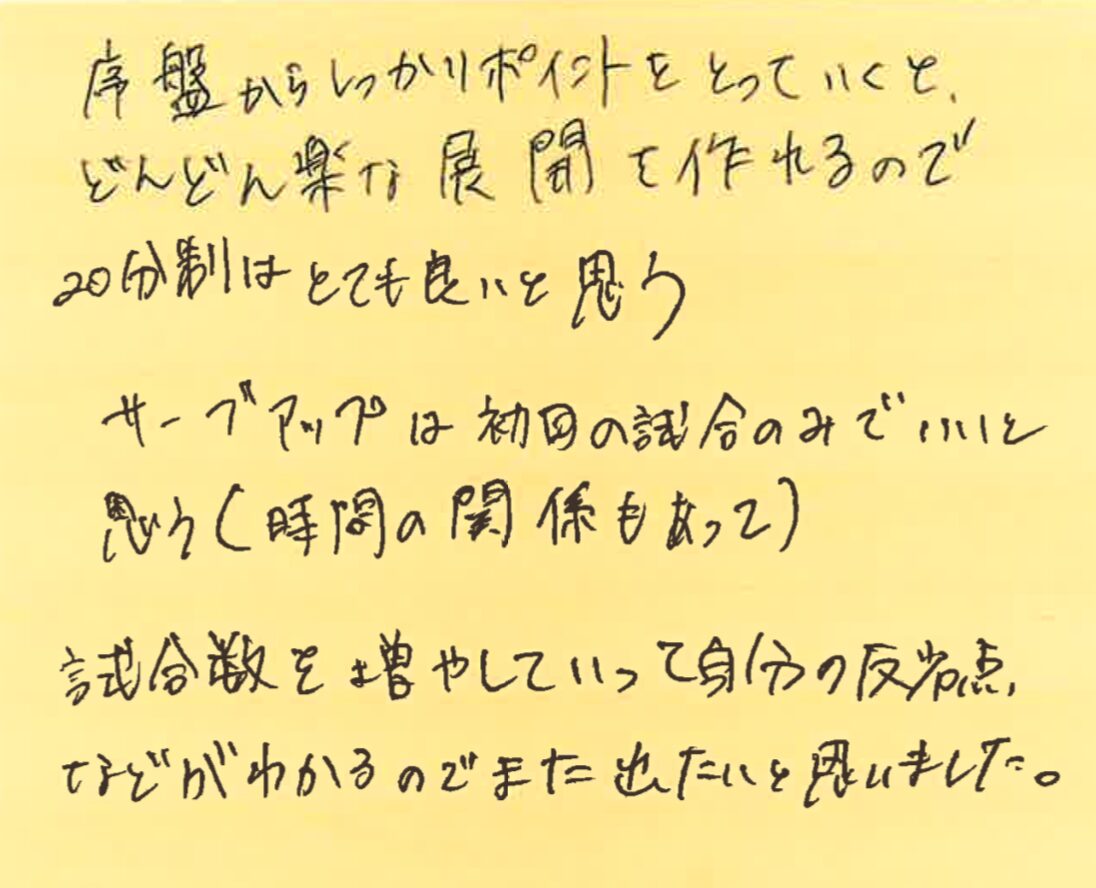 序盤からしっかりポイントをとっていくと、
どんどん楽な展開を作れるので
20分制はとても良いと思う
サーブアップは初回の試合のみでいいと
思う(時間の関係もあって)
試合数を増やしていって自分の反省点、
などがわかるのでまた出たいと思いました。